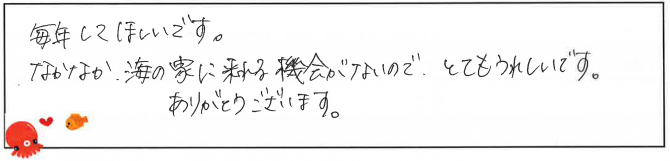 毎年してほしいです。
なかなか、海の家に来れる機会がないので、とてもうれしいです。
ありがとうございます。